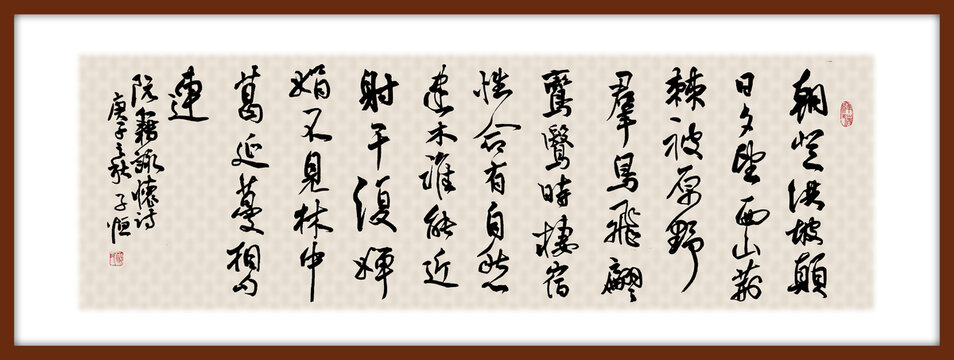 朝登洪坡顛
日夕望西山荊
棘被原野
羣鳥飛翩
鸞鷖時棲宿
性命有自然
建木誰能近
射干復嬋
娟不見林中
葛延蔓相勾
連
阮籍詠懷詩
庚子之秋子恒